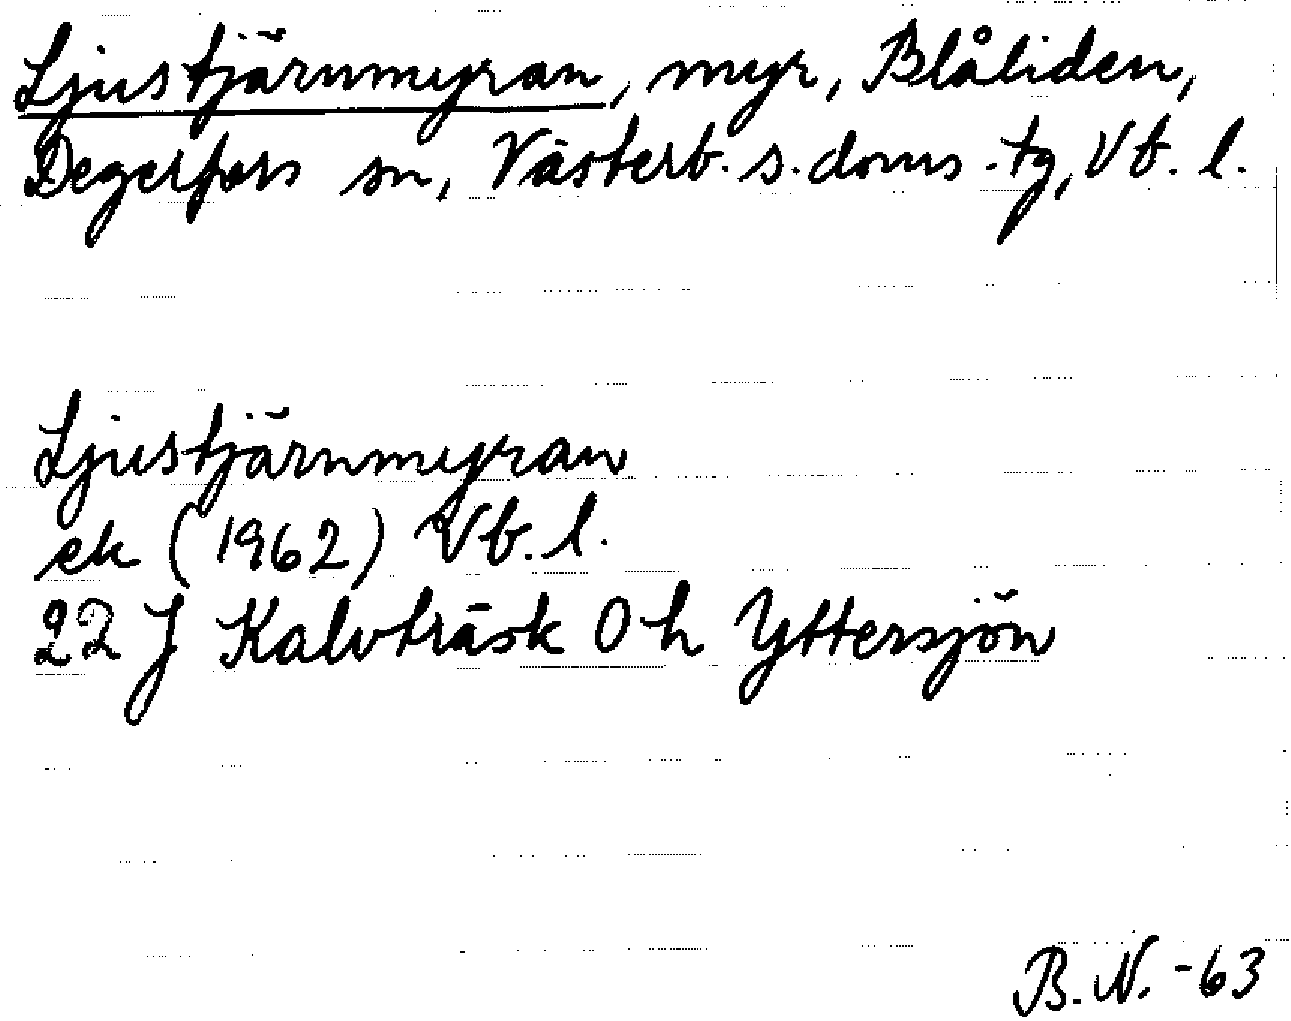 Ljustjärnmyran, myr, Blåliden,
Degerfors sn, Västerb. s. doms.tg, Vb. l.
Ljustjärnmyran
ek (1962) Vb. l.
22 J Kalvträsk 0 h Yttersjön
B. N. -63